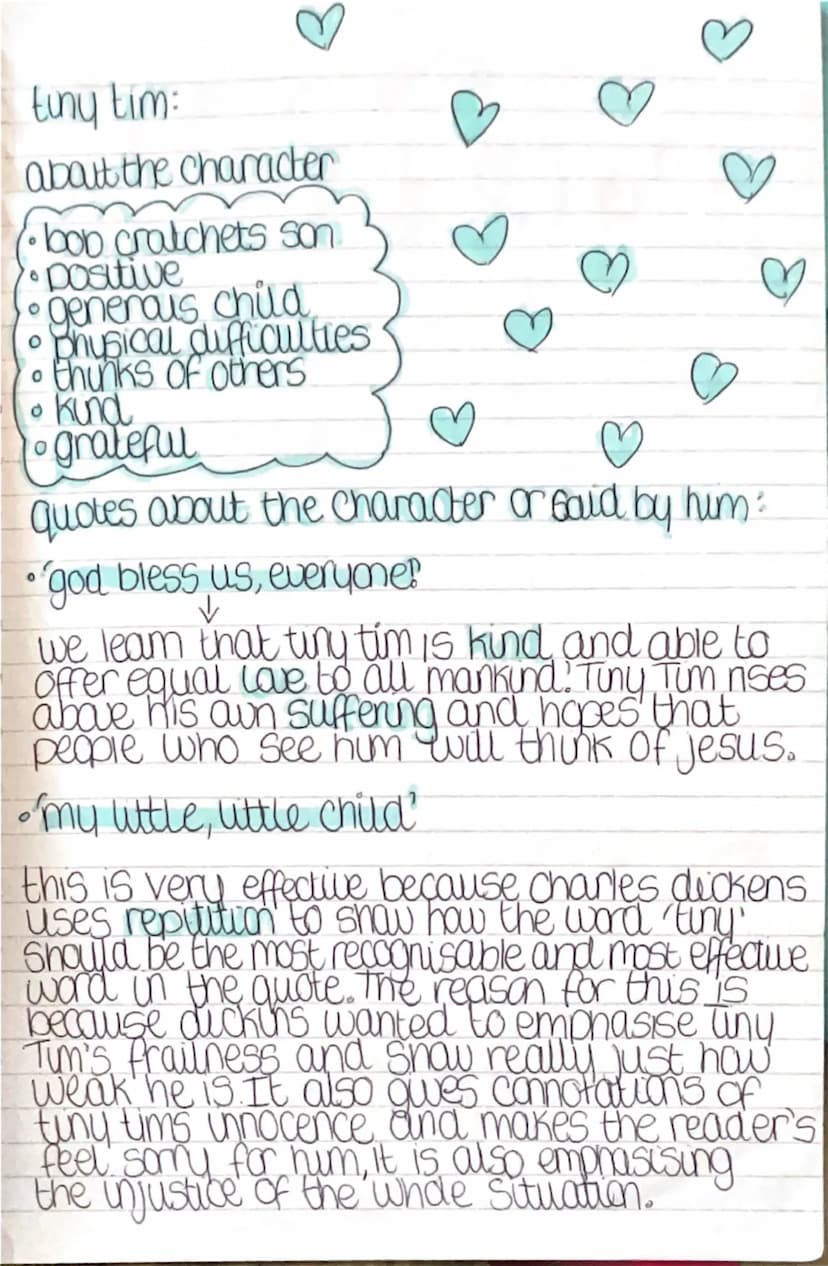 tiny tim:
about the character
• bob cratchets son
• positive
• generous child
• physical difficulties
• thinks of others
• kind
• grateful
quotes about the character or said by him:
• 'god bless us, everyone!'
↓
we learn that tiny tim is kind and able to
offer equal love to all mankind. Tiny Tim rises
above his own suffering and hopes that
people who see him will think of jesus.
• 'my little, little child'
this is very effective because charles dickens
uses repitition to show how the word 'tiny'
should be the most recognisable and most effective
word in the quote. The reason for this is
because dickins wanted to emphasise tiny
Tim's frailness and show really just how
weak he is. It also gives connotations of
tiny tims innocence and makes the reader's
feel sorry for him, it is also emphasising
the injustice of the whole situation.